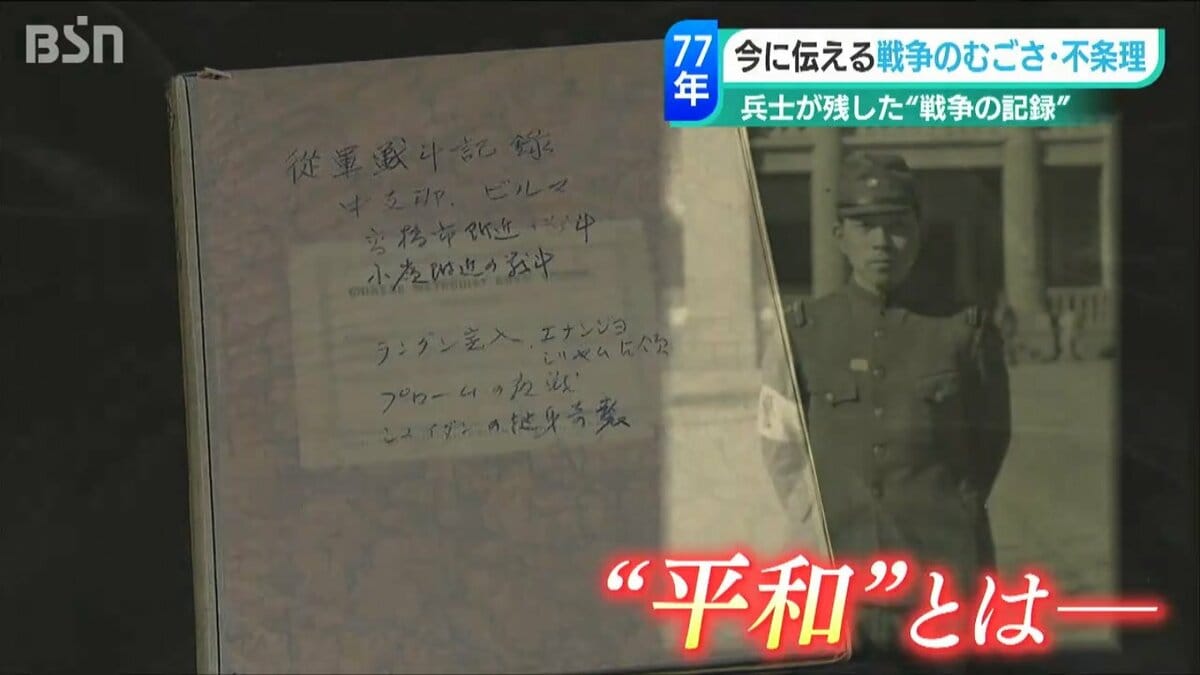 BSN
77年
今に伝える戦争のむごさ・不条理
兵士が残した“戦争の記録”
従軍戦斗記録
中支那、ビルマ
附近
附近の戦斗
ラングン突入、エナンジョ
占領
プロームの夜戦
の挺身奇襲
“平和”とは―